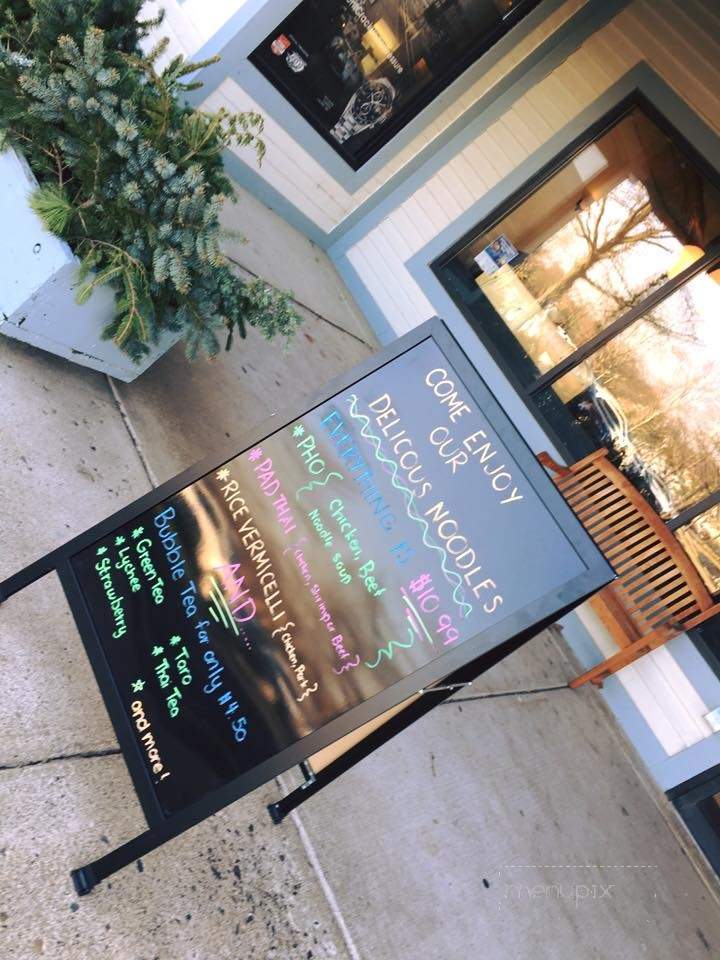 COME ENJOY
OUR
DELICOUS NOODLES
EVERYTHING IS $10.99
* PHO { Chicken, Beef
Noodle Soup
* PAD THAI { Chicken, Shrimp or Beef }
* RICE VERMICELLI { Chicken, Pork }
AND....
Bubble Tea for only $4.50
* Green Tea
* Lychee
* Strawberry
* Taro
* Thai Tea
* and more!
menupix